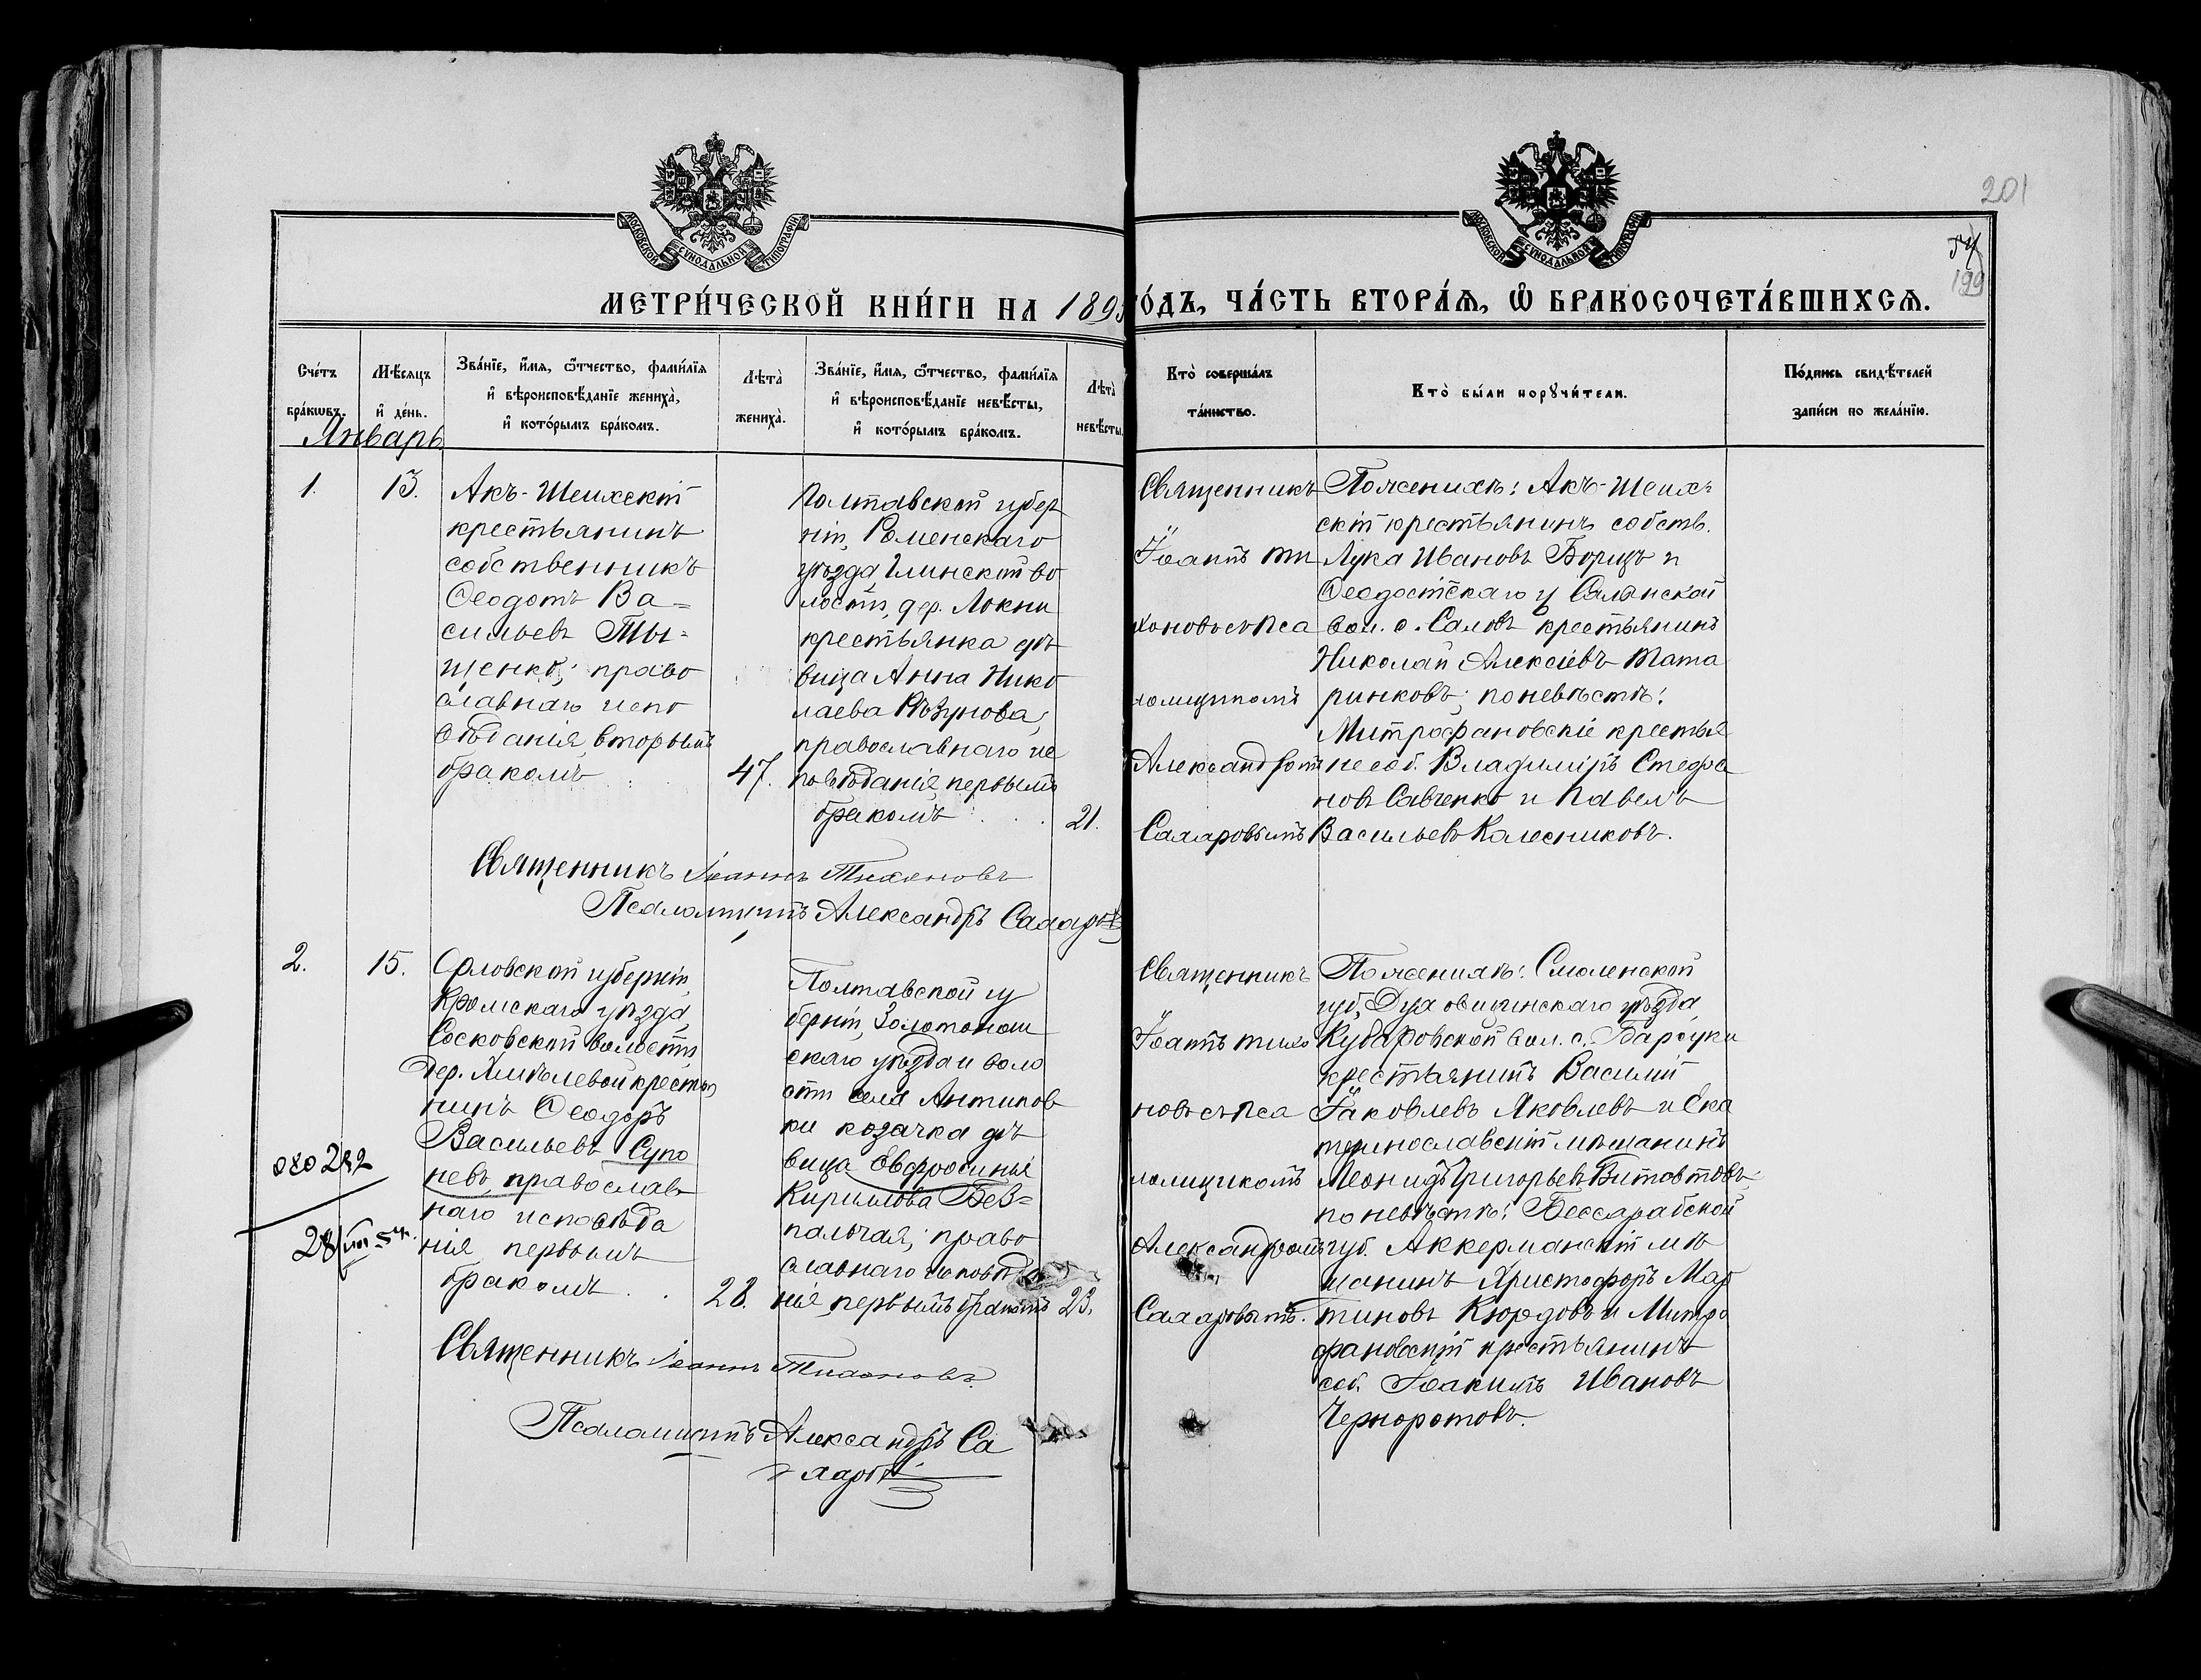 201
54
199
МОСКОВСКОЙ СѴНОДАЛЬНОЙ ТИПОГРАФІИ
МОСКОВСКОЙ СѴНОДАЛЬНОЙ ТИПОГРАФІИ
МЕТРИ́ЧЕСКОЙ КНИ́ГИ НА 1895
ГÓДЪ, ЧА́СТЬ ВТОРА́Ѧ, Ѽ БРАКОСОЧЕТА́ВШИХСѦ.
Сче́тъ бра́кωвъ.
Мѣ́сѧцъ и҆ де́нь.
Зва́нїе, и҆́мѧ, ѻ҆́тчество, фами́лїѧ
и҆ вѣроисповѣ́данїе жениха̀,
и҆ кото́рымъ бра́комъ.
Лѣта̀ жениха̀.
Зва́нїе, и҆́мѧ, ѻ҆́тчество, фами́лїѧ
и҆ вѣроисповѣ́данїе невѣ́сты,
и҆ кото́рымъ бра́комъ.
Лѣта̀ невѣ́сты.
Кто̀ соверша́лъ
та́инство.
Кто̀ бы́ли порꙋчи́тели.
По́дпись свидѣ́телей
за́писи по жела́нїю.
Январь
1.
13.
Акъ-Шеихскій
крестьянинъ
собственникъ
Ѳеодотъ Ва=
сильевъ Ты=
щенко; право
славнаго испо
вѣданія, вторымъ
бракомъ
47.
Полтавской губер
ніи, Роменскаго
уѣзда, Глинской во
лости, дер. Локни
крестьянка дѣ
вица Анна Нико
лаева Рѣзунова,
православнаго ис
повѣданія, первымъ
бракомъ
21.
Священникъ
Іоаннъ Ти
хоновъ съ Пса
ломщикомъ
Александромъ
Сахаровымъ
По женихѣ: Акъ-Шеих=
скій крестьянинъ собств.
Лука Ивановъ Борицъ и
Ѳеодосійскаго у Салынской
вол. с. Саловъ крестьянинъ
Николай Алексіевъ Тата
ринковъ; по невѣстѣ:
Митрофановскіе крестья
не соб. Владиміръ Стефа
новъ Савченко и Павелъ
Васильевъ Калесниковъ.
Священникъ Іоаннъ Тихоновъ
Псаломщикъ Александръ Сахаровъ
2.
15.
Орловской губерніи,
Кромскаго уѣзда
Сосковской волости
дер. Хмѣлевой крестья
нинъ Ѳеодоръ
Васильевъ Супо
невъ, православ
наго исповѣда
нія, первымъ
бракомъ
28.
282
28/VIII 54.
Полтавской гу
берніи, Золотонош
скаго уѣзда и воло
сти села Антипов
ки козачка дѣ
вица Евфросинья
Кириллова Без=
пальчая, право
славнаго исповѣда
нія, первымъ бракомъ
23.
Священникъ
Іоаннъ Тихо
новъ съ Пса
ломщикомъ
Александромъ
Сахаровымъ.
По женихѣ: Смоленской
губ, Духовщинскаго уѣзда
Кубаровской вол. с. Барсуки
крестьянинъ Василій
Іаковлевъ Яковлевъ и Ека
теринославскій мѣщанинъ
Леонидъ Григорьевъ Витовтовъ;
по невѣстѣ: Бессарабской
губ. Аккерманскій мѣ
щанинъ Христофоръ Мар
тиновъ Кюрдовъ и Митро
фановскій крестьянинъ
соб. Іоакимъ Ивановъ
Черноротовъ.
Священникъ Іоаннъ Тихоновъ.
Псаломщикъ Александръ Са
харовъ